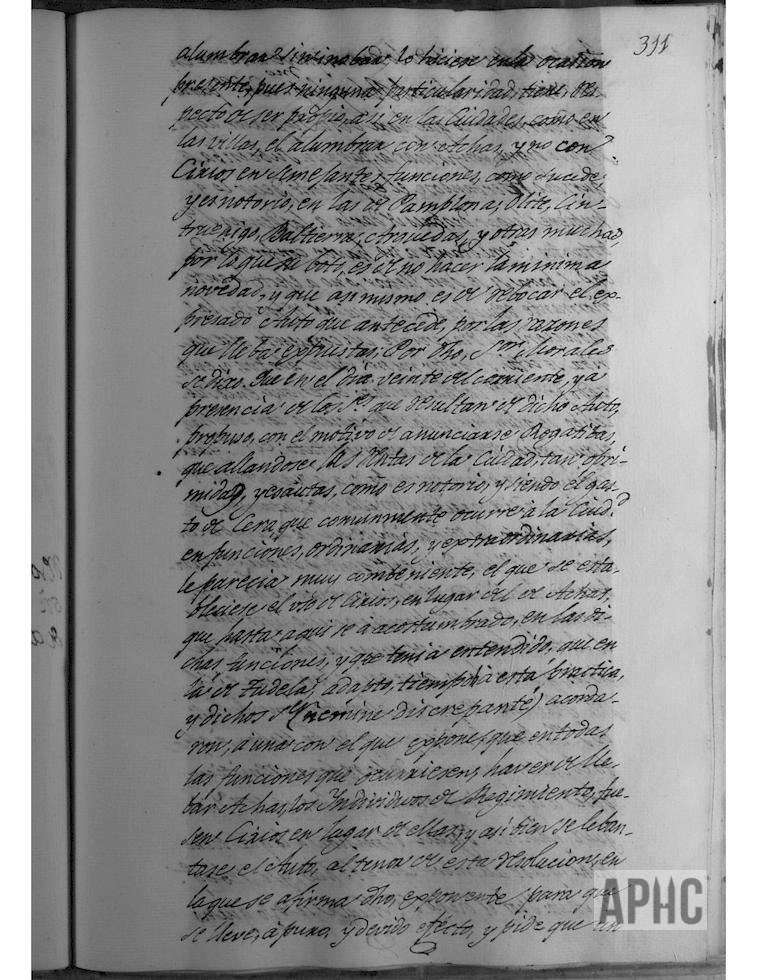 311
alumbrar sinina bada lo hiciese en la ocasion
presente, pues ninguna particularidad tiene, res
pecto de ser propio, asi en las Ciudades, como en
las villas, el alumbrar con Achas, y no con
Cirios en semejantes funciones, como sucede,
y es notorio, en las de Pamplona, Olite, Cin-
truenigo, Baltierra, Arguedas, y otras muchas,
por lo que su boto, es de no hacer la minima
novedad, y que asi mismo es de rebocar el ex-
presado Auto que antecede, por las razones
que lleba expuestas, Por dho, Sr. Morales
se dixo. Que en el dia veinte del corriente, y a
presencia de los Ss. que resultan de dicho Auto,
propuso, con el motivo de anunciarse Rogatibas,
que allandose las Rentas de la Ciudad, tan opri-
midas, y exautas, como es notorio, y siendo el gas-
to de Cera que comunmente ocurre a la Ciud.d
en funciones, ordinarias, y extraordinarias,
le parecia muy combeniente, el que se esta-
bleciese el uso de Cirios, en lugar del de Achas,
que hasta aqui se à acostumbrado, en las di-
chas funciones, y que tenia entendido, que en
la de Tudela, adapto, tiempo à esta practica,
y dichos Ss. (nemine discrepante) acorda-
ron, à una con el que expone, que en todas
las funciones que ocurriesen, haver de lle-
bar Achas, los Individuos de Regimiento, fue-
sen Cirios en lugar de ellas, y asi bien se leban-
tase el Auto, al tenor de esta resolucion, en
la que se afirma dho, exponente para que
se lleve, à puro, y devido efecto, y pide que un
APHC